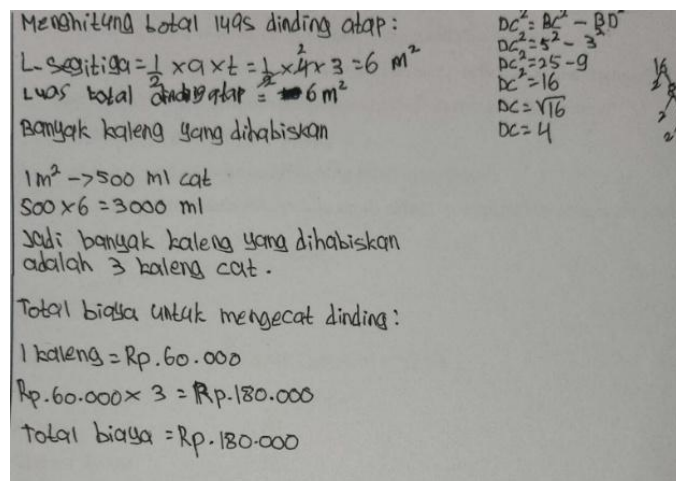 Menghitung total luas dinding atap:
L. segitiga = 1/2 × a × t = 1/2 × 4 × 3 = 6 m²
2
Luas total dinding atap = 6 m²
Banyak kaleng yang dihabiskan
1 m² -> 500 ml cat
500 × 6 = 3000 ml
Jadi banyak kaleng yang dihabiskan
adalah 3 kaleng cat.
Total biaya untuk mengecat dinding:
1 kaleng = Rp. 60.000
Rp. 60.000 × 3 = Rp. 180.000
Total biaya = Rp. 180.000
DC² = BC² - BD²
DC² = 5² - 3²
DC² = 25 - 9
DC² = 16
DC = √16
DC = 4
16
2
2
2